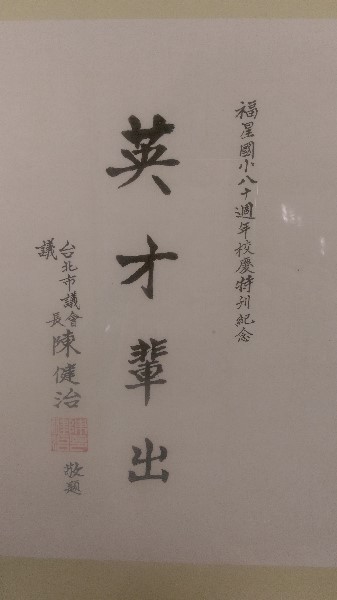 福星國小八十週年校慶特刊紀念
英才輩出
台北市議會
議長陳健治
敬題